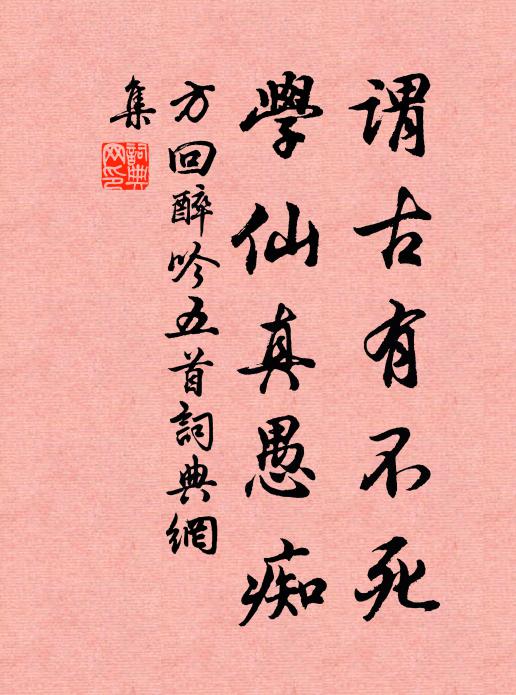 謂古有不死
學仙真愚痴
方回醉吟五首詞典網
集
詞典
网印